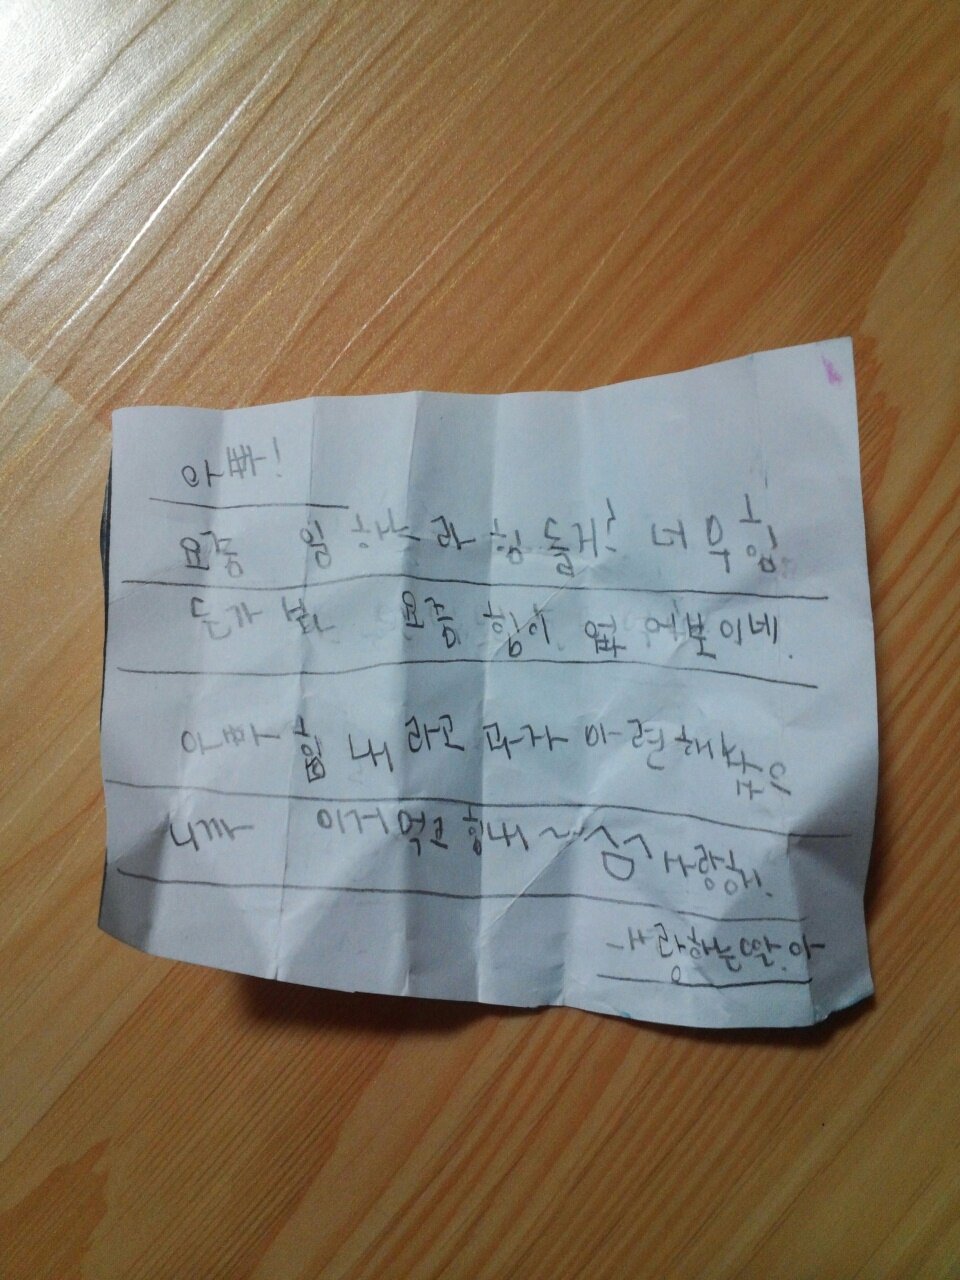 아빠!
요즘 일 하느라 힘들지? 너무 힘
든가 봐 요즘 힘이 없어보이네.
아빠 힘 내라고 과자 마련해놨으
니까 이거먹고 힘내~ ^ㅁ^ 사랑해.
-사랑하는딸